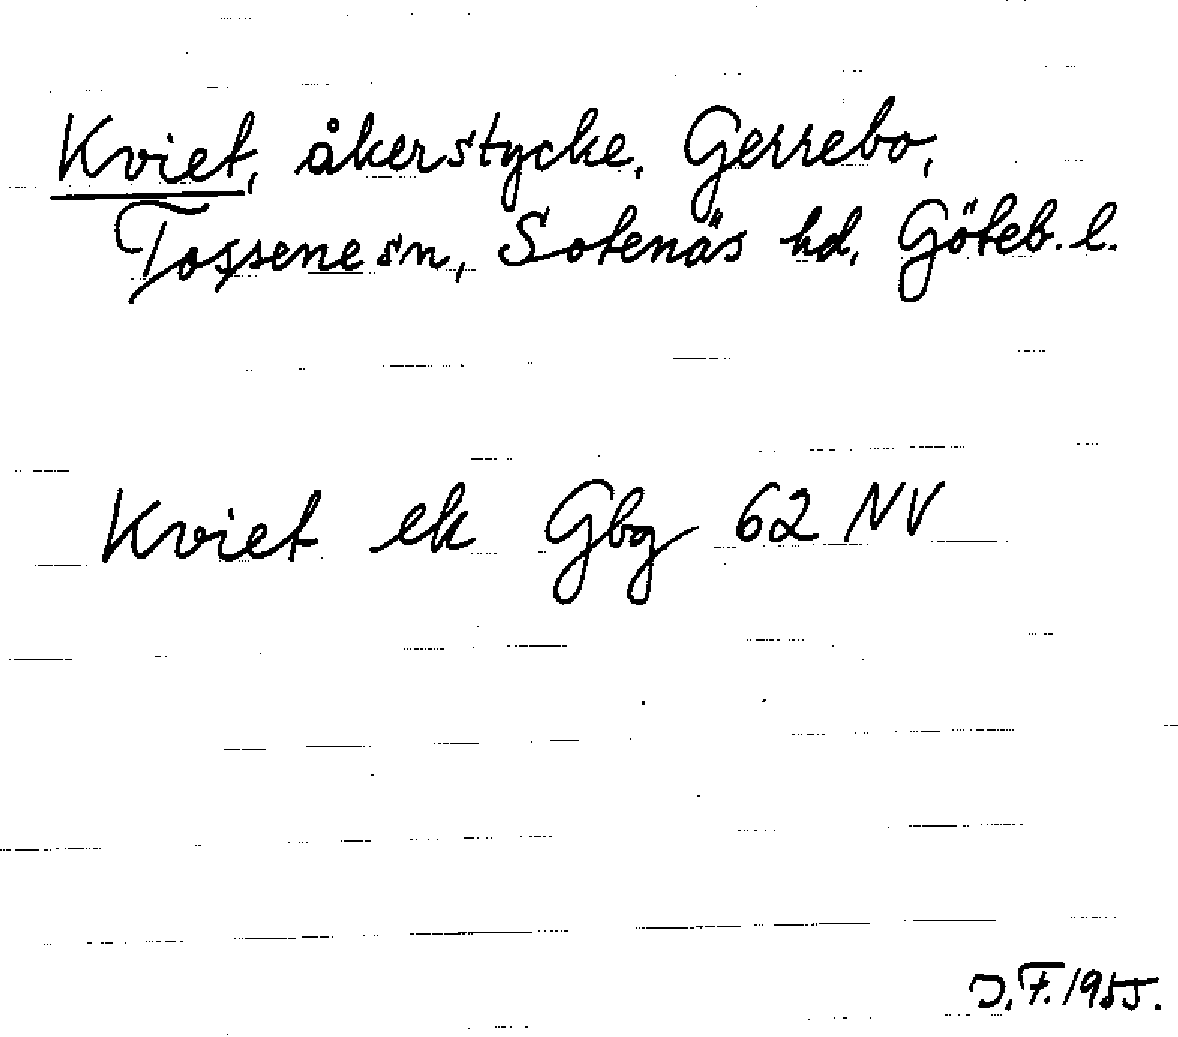 Kviet, åkerstycke, Gerrebo,
Tossene sn, Sotenäs hd, Göteb. l.
Kviet ek Gbg 62 NV
J.F. 1955.